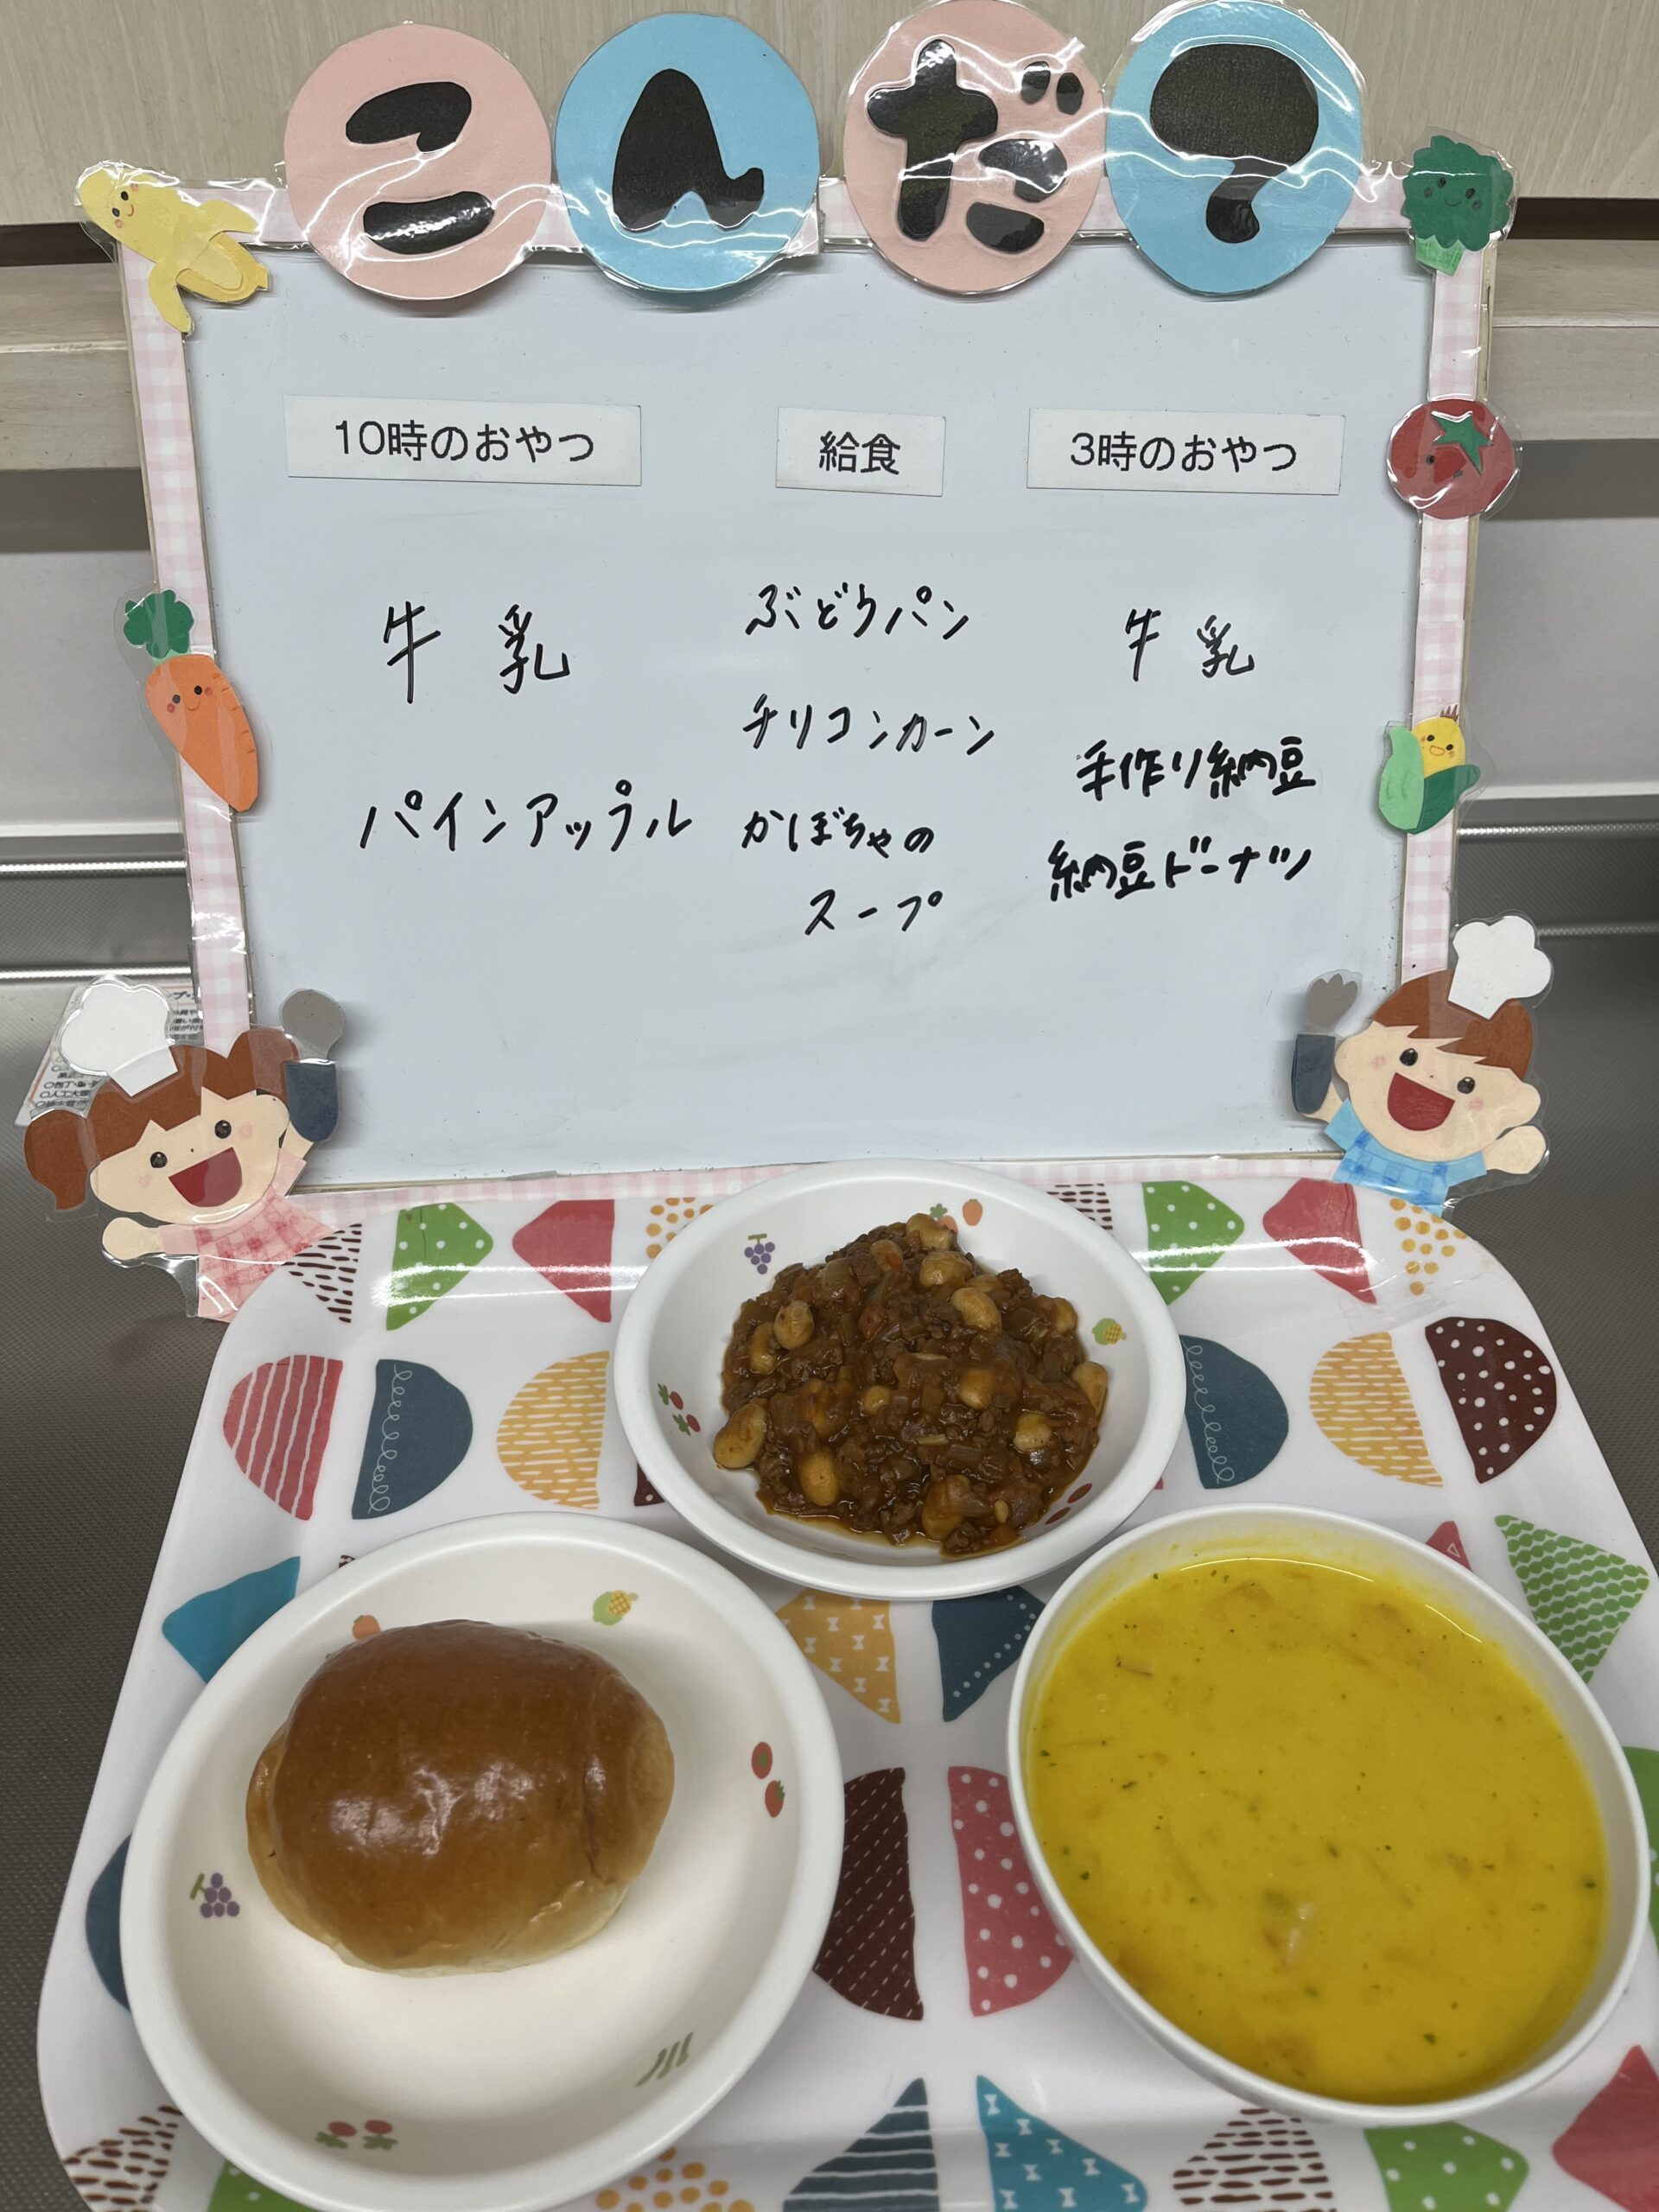 こんだて
10時のおやつ
牛乳
パインアップル
給食
ぶどうパン
チリコンカーン
かぼちゃの
スープ
3時のおやつ
牛乳
手作り納豆
納豆ドーナツ